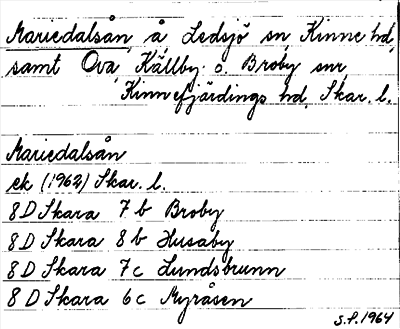 Mariedalsån å, Ledsjö sn, Kinne hd,
samt Ova, Källby o. Broby snr,
Kinnefjärdings hd, Skar. l.
Mariedalsån
ek (1962) Skar. l.
8D Skara 7 b Broby
8D Skara 8 b Husaby
8D Skara 7c Lundsbrunn
8 D Skara 6c Myråsen
S.P. 1964